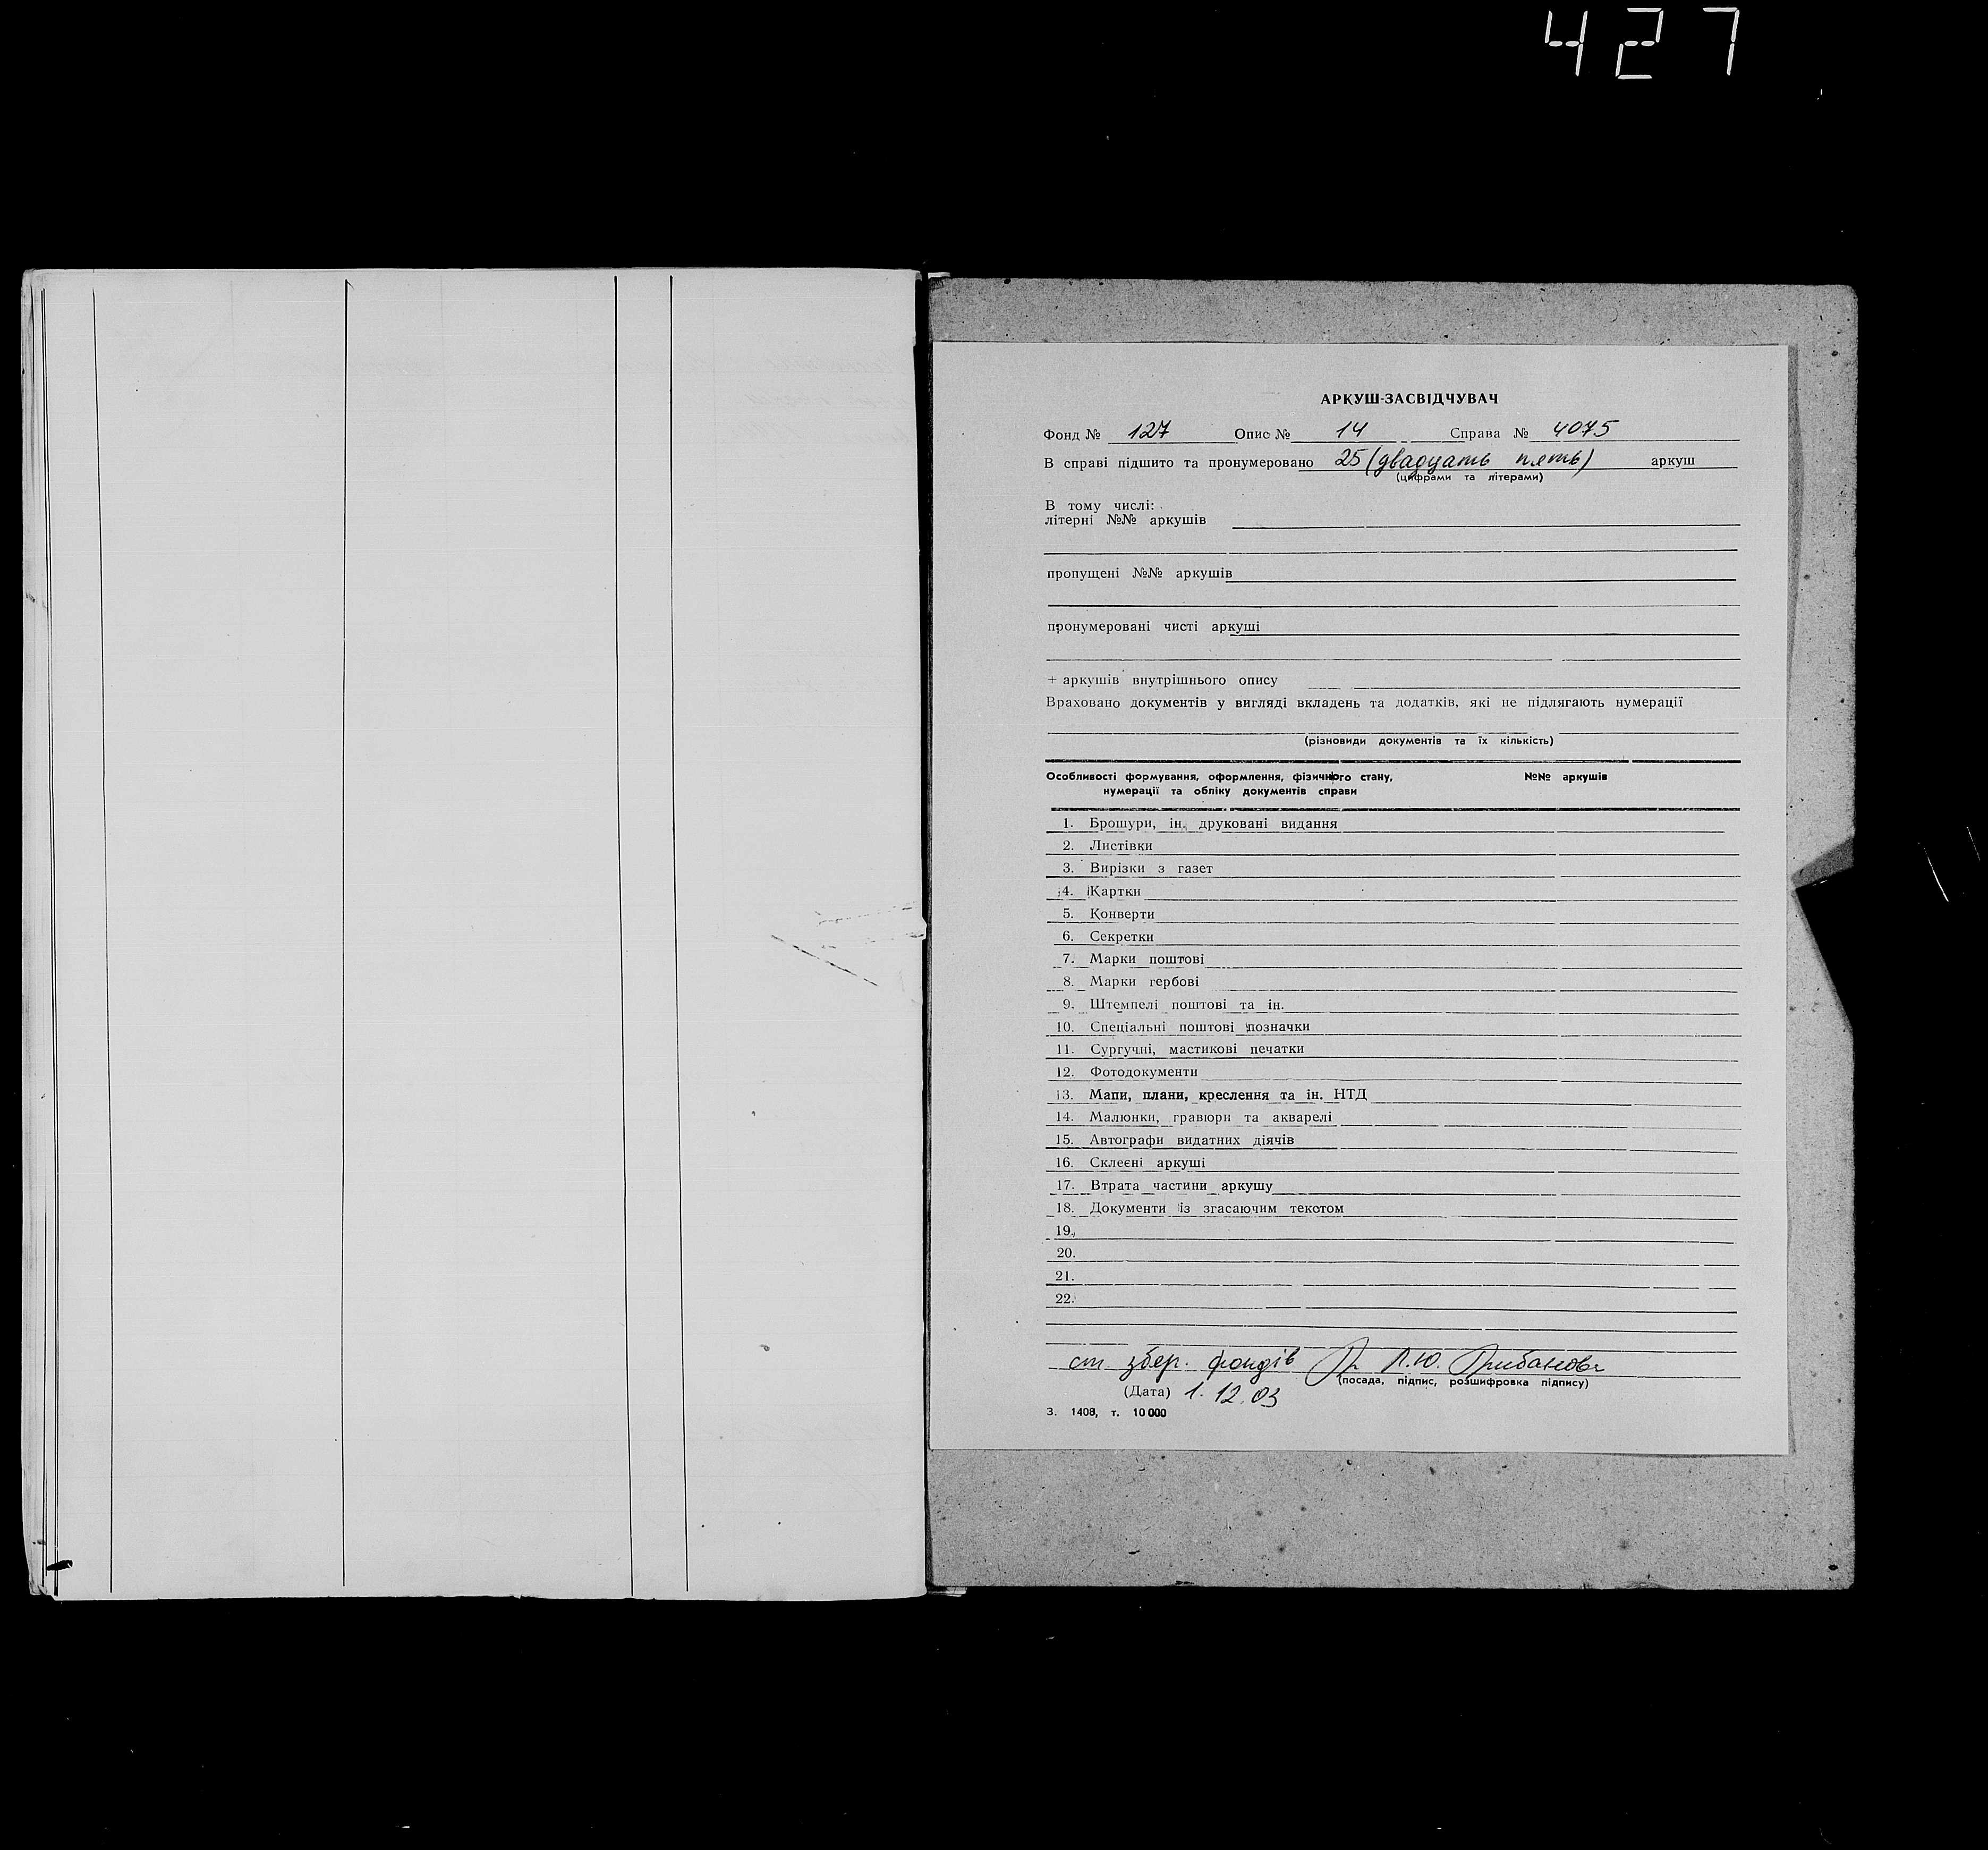 427
АРКУШ-ЗАСВІДЧУВАЧ
Фонд № 127 Опис № 14 Справа № 4075
В справі підшито та пронумеровано 25 (двадцать пять) аркуш
(цифрами та літерами)
В тому числі:
літерні №№ аркушів
пропущені №№ аркушів
пронумеровані чисті аркуші
+ аркушів внутрішнього опису
Враховано документів у вигляді вкладень та додатків, які не підлягають нумерації
(різновиди документів та їх кількість)
Особливості формування, оформлення, фізичного стану, №№ аркушів
нумерації та обліку документів справи
1. Брошури, ін. друковані видання
2. Листівки
3. Вирізки з газет
4. Картки
5. Конверти
6. Секретки
7. Марки поштові
8. Марки гербові
9. Штемпелі поштові та ін.
10. Спеціальні поштові позначки
11. Сургучні, мастикові печатки
12. Фотодокументи
13. Мапи, плани, креслення та ін. НТД
14. Малюнки, гравюри та акварелі
15. Автографи видатних діячів
16. Склеєні аркуші
17. Втрата частини аркушу
18. Документи із згасаючим текстом
19.
20.
21.
22.
ст збер. фондів Л.Ю.
(посада, підпис, розшифровка підпису)
(Дата) 1.12.03
З. 1408, т. 10 000